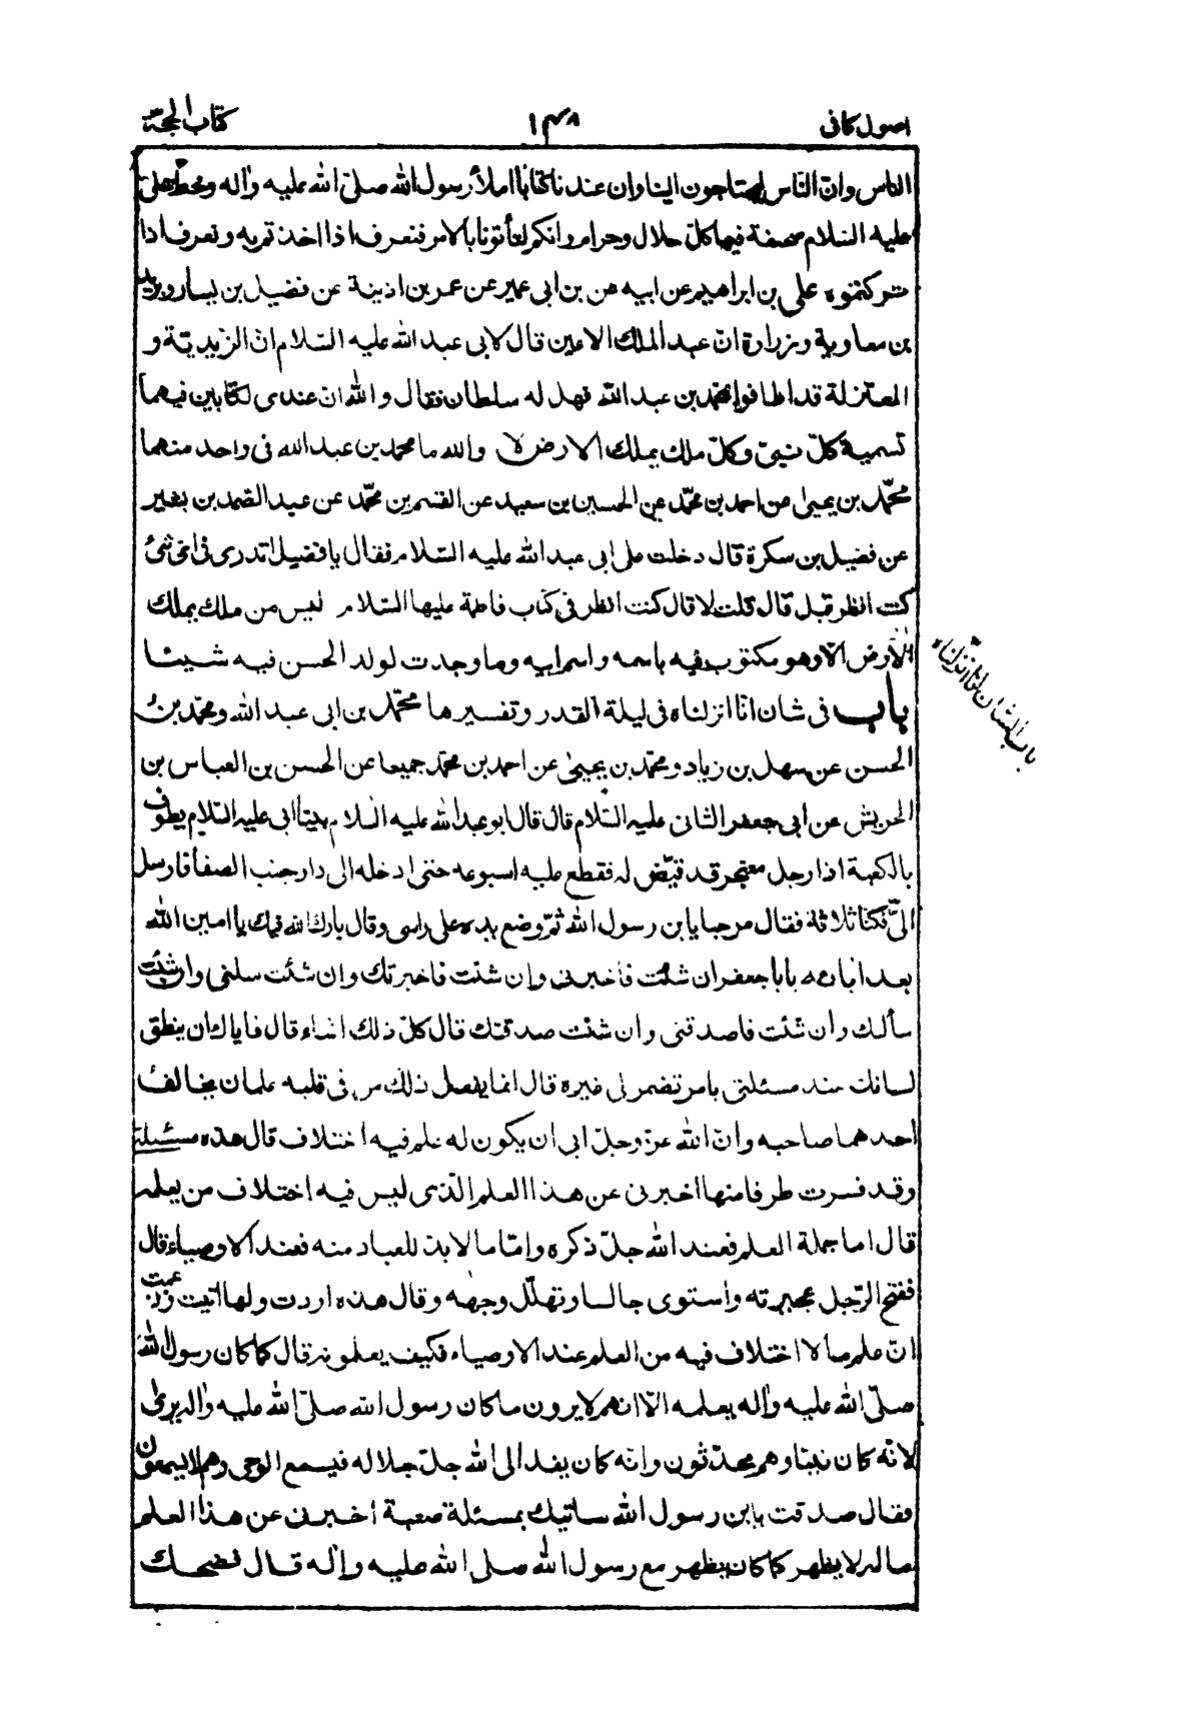 اصول كافى
١٤٨
كتاب الحجة
الناس وان الناس ليحتاجون الينا وان عندنا كتابا املأ رسول الله صلى الله عليه واله وخط على
عليه السلام صحيفة فيها كل حلال وحرام وانكم لتأتونا بالامر فنعرف اذا اخذتم به ونعرف اذا
تركتموه على بن ابراهيم عن ابيه عن بن ابى عمير عن عمر بن اذينة عن فضيل بن يسار وبريد
بن معاوية وزرارة ان عبد الملك الاعين قال لابى عبد الله عليه السلام ان الزيدية و
المعتزلة قد اطافوا بمحمد بن عبد الله فهل له سلطان فقال والله ان عندى لكتابين فيهما
تسمية كل نبى وكل ملك يملك الارض لا والله ما محمد بن عبد الله فى واحد منهما
محمد بن يحيى عن احمد بن محمد عن الحسين بن سعيد عن القسم بن محمد عن عبد الصمد بن بشير
عن فضيل بن سكرة قال دخلت على ابى عبد الله عليه السلام فقال يا فضيل اتدرى فى اى شئ
كنت انظر قبل قال قلت لا قال كنت انظر فى كتاب فاطمة عليها السلام ليس من ملك يملك
الأرض الا وهو مكتوب فيه باسمه واسم ابيه وما وجدت لولد الحسن فيه شيئا
باب فى شان انا انزلناه فى ليلة القدر وتفسيرها محمد بن ابى عبد الله ومحمد بن
الحسن عن سهل بن زياد ومحمد بن يحيى عن احمد بن محمد جميعا عن الحسن بن العباس بن
الحريش عن ابى جعفر الثانى عليه السلام قال قال ابو عبد الله عليه السلام بينا ابى عليه السلام يطوف
بالكعبة اذا رجل معتجر قد قيض له فقطع عليه اسبوعه حتى ادخله الى دار جنب الصفا فارسل
الى فكنا ثلاثة فقال مرحبا يا بن رسول الله ثم وضع يده على راسى وقال بارك الله فيك يا امين الله
بعد ابائه يا با جعفر ان شئت فأخبرنى وان شئت فاخبرتك وان شئت سلنى وان شئت
سألتك وان شئت فاصدقنى وان شئت صدقتك قال كل ذلك اشاء قال فاياك ان ينطق
لسانك عند مسئلتى بامر تضمر لى غيره قال انما يفعل ذلك من فى قلبه علمان يخالف
احدهما صاحبه وان الله عز وجل ابى ان يكون له علم فيه اختلاف قال هذه مسئلتى
وقد فسرت طرفا منها اخبرنى عن هذا العلم الذى ليس فيه اختلاف من يعلمه
قال اما جملة العلم فعند الله جل ذكره واما ما لا بد للعباد منه فعند الاوصياء قال
ففتح الرجل عجيرته واستوى جالسا وتهلل وجهه وقال هذه اردت ولها اتيت زعمت
ان علم ما لا اختلاف فيه من العلم عند الاوصياء فكيف يعلمونه قال كما كان رسول الله
صلى الله عليه واله يعلمه الا انهم لا يرون ما كان رسول الله صلى الله عليه واله يرى
لانه كان نبيا وهم محدثون وانه كان يفد الى الله جل جلاله فيسمع الوحى وهم لا يسمعون
فقال صدقت يا بن رسول الله ساتيك بمسئلة صعبة اخبرنى عن هذا العلم
ماله لا يظهر كما كان يظهر مع رسول الله صلى الله عليه واله قال فضحك
باب الشان انا انزلناه